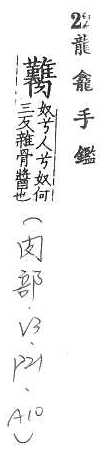 2龍龕手鑑
臡
奴兮人兮奴何
三反雜骨醬也
(肉部.V3.P21.A10)